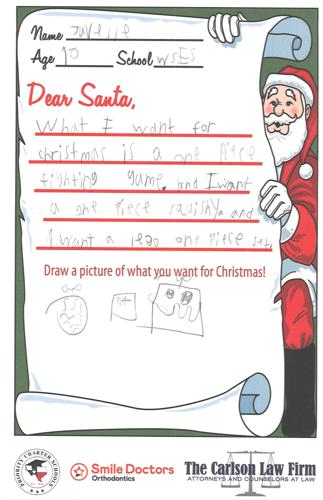 Name Javelle
Age 10 School WSES
Dear Santa,
What I want for
christmas is a one Piece
fighting game. and I want
a one piece squishy. and
I want a lego one Piece set.
Draw a picture of what you want for Christmas!
PRIORITY CHARTER SCHOOLS
Smile Doctors
Orthodontics
The Carlson Law Firm
ATTORNEYS AND COUNSELORS AT LAW